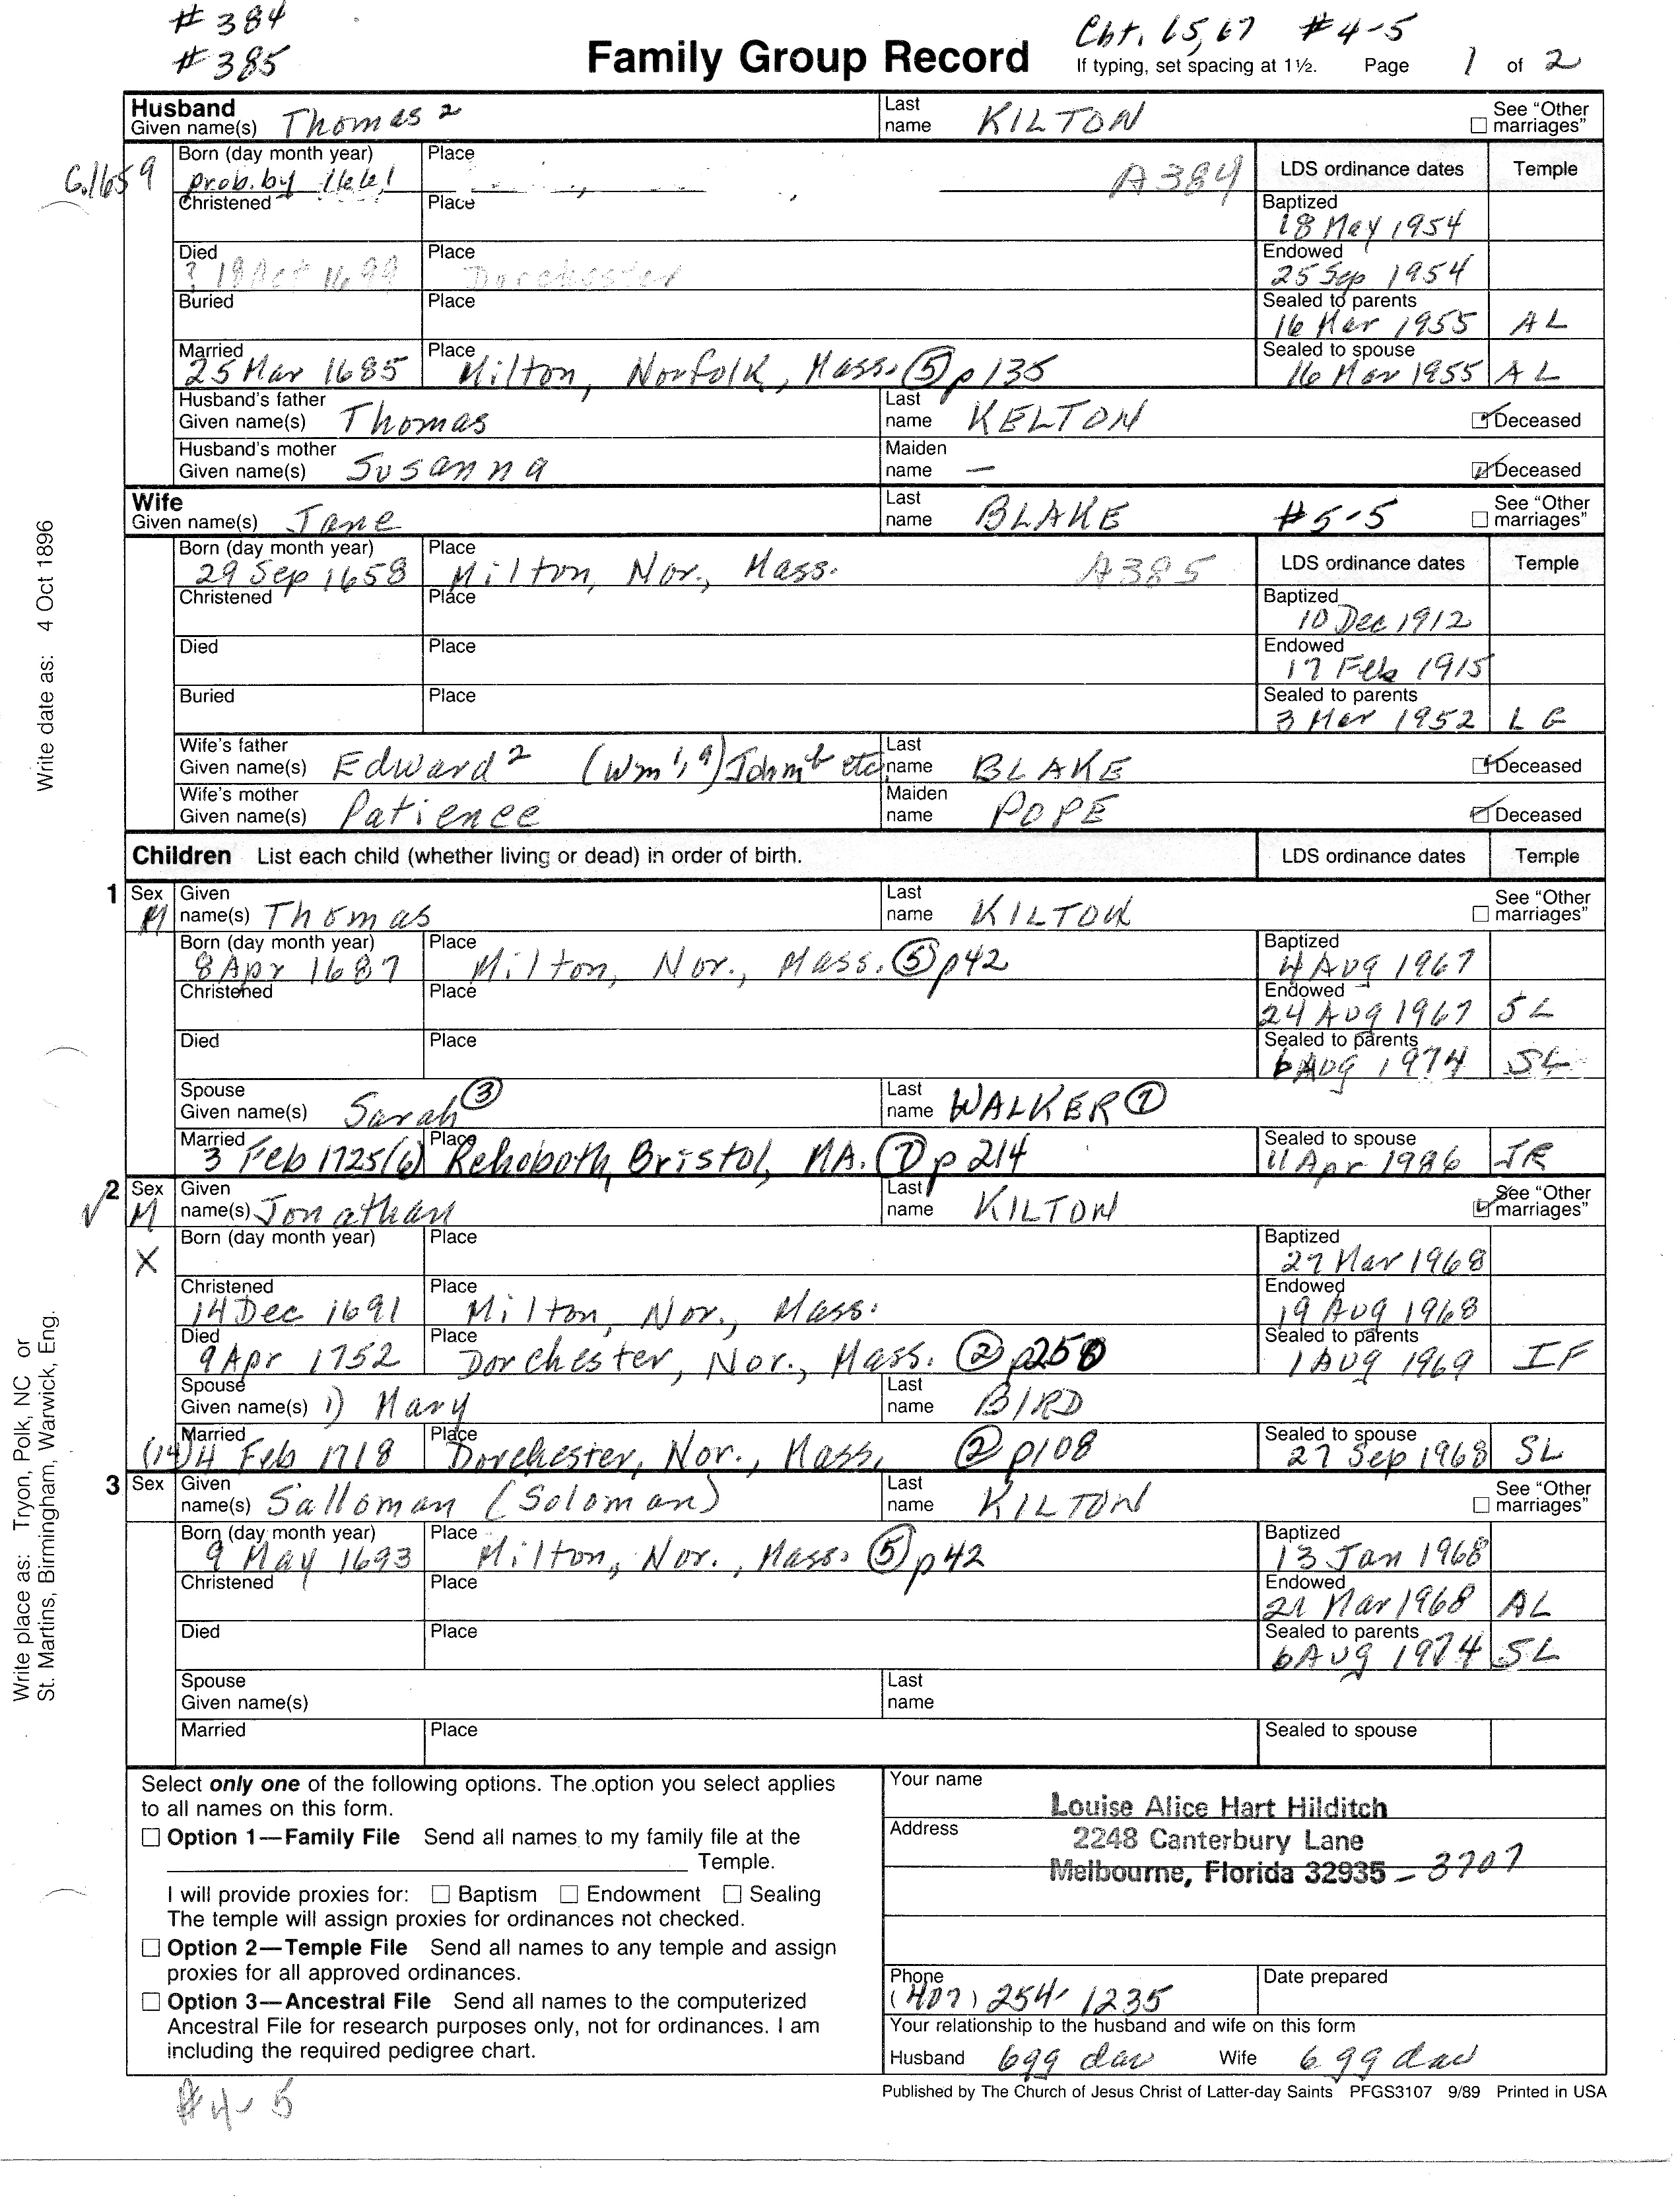 # 384
# 385
Cht. 65, 67 # 4-5
Family Group Record
If typing, set spacing at 1½. Page 1 of 2
Husband
Given name(s) Thomas 2
Last name KILTON
See "Other marriages"
C.1659
Born (day month year) prob. by 1661
Place
A384
LDS ordinance dates Temple
Christened
Place
Baptized 18 May 1954
Died ? 18 Oct 1699
Place Dorchester
Endowed 25 Sep 1954
Buried
Place
Sealed to parents 16 Mar 1955 AL
Married 25 Mar 1685
Place Milton, Norfolk, Mass. (5) p 135
Sealed to spouse 16 Mar 1955 AL
Husband's father
Given name(s) Thomas
Last name KELTON
Deceased
Husband's mother
Given name(s) Susanna
Maiden name —
Deceased
Wife
Given name(s) Jane
Last name BLAKE #5-5
See "Other marriages"
Born (day month year) 29 Sep 1658
Place Milton, Nor., Mass.
A385
LDS ordinance dates Temple
Christened
Place
Baptized 10 Dec 1912
Died
Place
Endowed 17 Feb 1915
Buried
Place
Sealed to parents 3 Mar 1952 LG
Wife's father
Given name(s) Edward 2 (Wm 1, a) John b etc
Last name BLAKE
Deceased
Wife's mother
Given name(s) Patience
Maiden name POPE
Deceased
Children List each child (whether living or dead) in order of birth.
LDS ordinance dates Temple
1 Sex M
Given name(s) Thomas
Last name KILTON
See "Other marriages"
Born (day month year) 8 Apr 1687
Place Milton, Nor., Mass. (5) p42
Baptized 4 Aug 1967
Christened
Place
Endowed 24 Aug 1967 SL
Died
Place
Sealed to parents 6 Aug 1974 SL
Spouse
Given name(s) Sarah (3)
Last name WALKER (7)
Married 3 Feb 1725(6)
Place Rehoboth, Bristol, MA. (7) p 214
Sealed to spouse 11 Apr 1986 JR
2 Sex M
X
Given name(s) Jonathan
Last name KILTON
See "Other marriages"
Born (day month year)
Place
Baptized 27 Mar 1968
Christened 14 Dec 1691
Place Milton, Nor., Mass.
Endowed 19 Aug 1968
Died 9 Apr 1752
Place Dorchester, Nor., Mass. (2) p250
Sealed to parents 1 Aug 1969 IF
Spouse
Given name(s) 1) Mary
Last name BIRD
Married (14) 4 Feb 1718
Place Dorchester, Nor., Mass, (2) p108
Sealed to spouse 27 Sep 1968 SL
3 Sex
Given name(s) Salloman (Soloman)
Last name KILTON
See "Other marriages"
Born (day month year) 9 May 1693
Place Milton, Nor., Mass. (5) p42
Baptized 13 Jan 1968
Christened
Place
Endowed 21 Mar 1968 AL
Died
Place
Sealed to parents 6 Aug 1974 SL
Spouse
Given name(s)
Last name
Married
Place
Sealed to spouse
Write date as: 4 Oct 1896
Write place as: Tryon, Polk, NC or
St. Martins, Birmingham, Warwick, Eng.
Select only one of the following options. The option you select applies
to all names on this form.
Option 1—Family File Send all names to my family file at the
Temple.
I will provide proxies for: Baptism Endowment Sealing
The temple will assign proxies for ordinances not checked.
Option 2—Temple File Send all names to any temple and assign
proxies for all approved ordinances.
Option 3—Ancestral File Send all names to the computerized
Ancestral File for research purposes only, not for ordinances. I am
including the required pedigree chart.
Your name
Louise Alice Hart Hilditch
Address
2248 Canterbury Lane
Melbourne, Florida 32935 - 3707
Phone (407) 254-1235
Date prepared
Your relationship to the husband and wife on this form
Husband 6gg dau Wife 6 gg dau
Published by The Church of Jesus Christ of Latter-day Saints PFGS3107 9/89 Printed in USA
#4-5